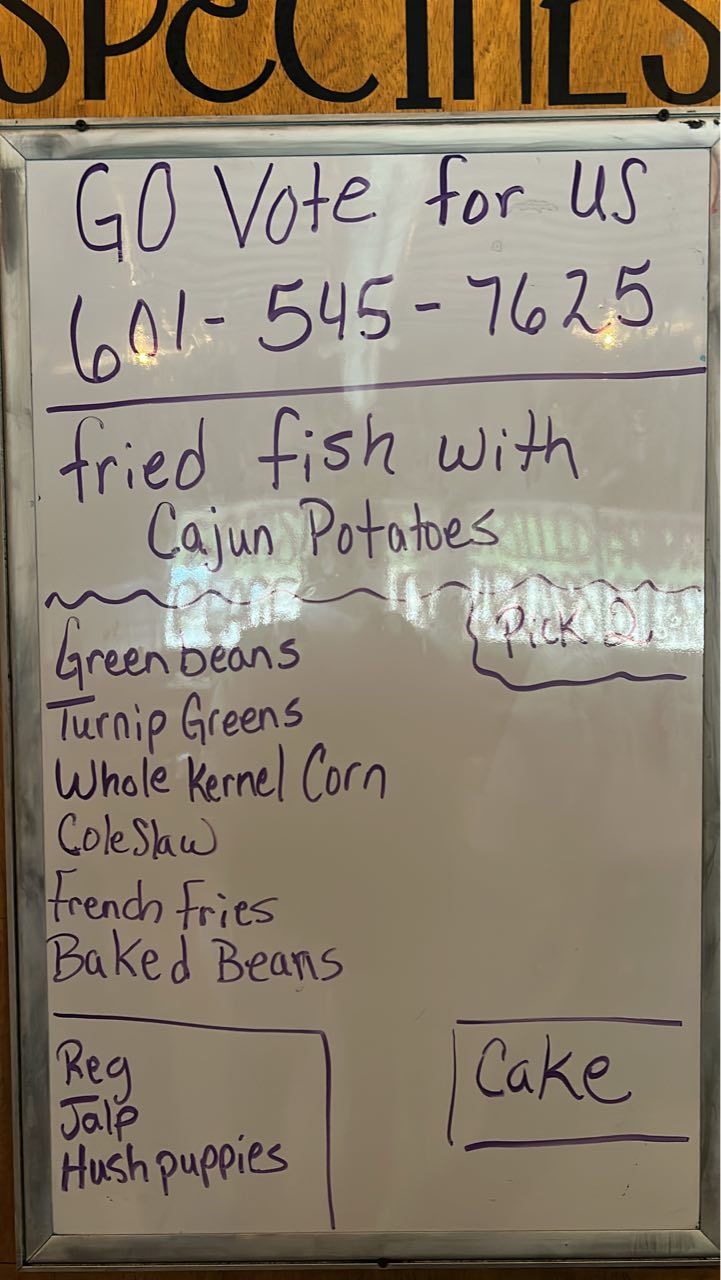 SPECIALS
GO Vote for us
601-545-7625
fried fish with
Cajun Potatoes
Pick 2
Green beans
Turnip Greens
Whole Kernel Corn
Cole Slaw
French Fries
Baked Beans
Reg
Jalp
Hush puppies
Cake